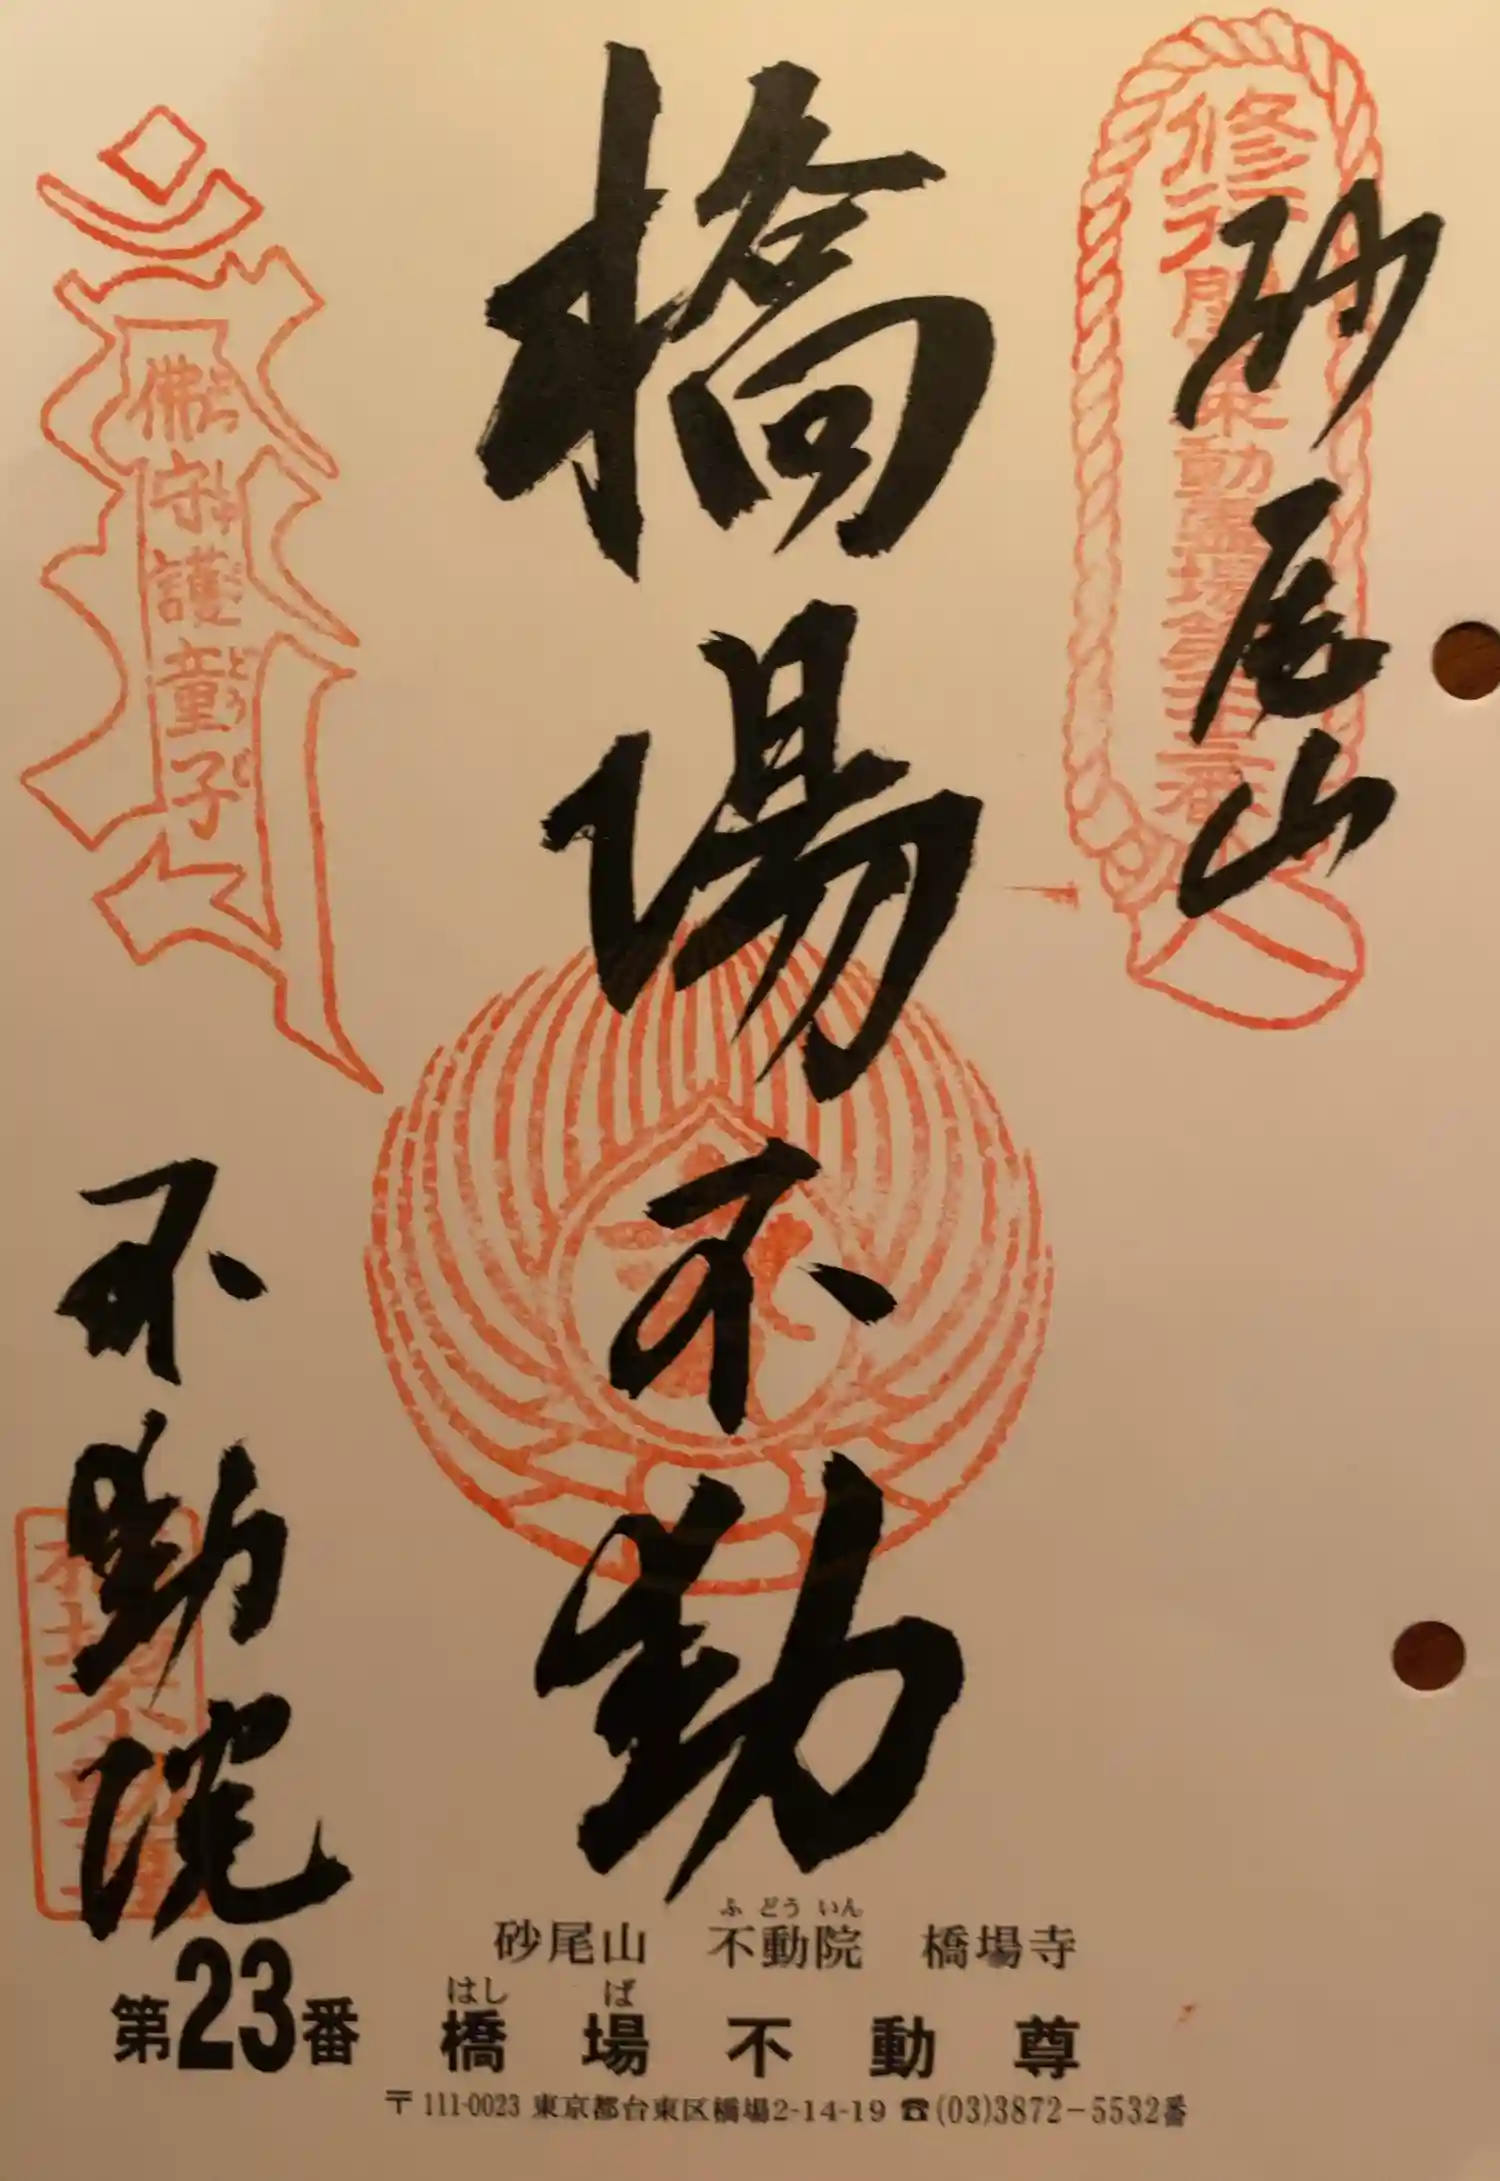 砂尾山
修行
動霊場第二十三番
橋場不動
佛守護童子
不動院
ふどういん
砂尾山 不動院 橋場寺
はしば
第23番 橋場不動尊
〒111-0023 東京都台東区橋場2-14-19 ☎(03)3872-5532番